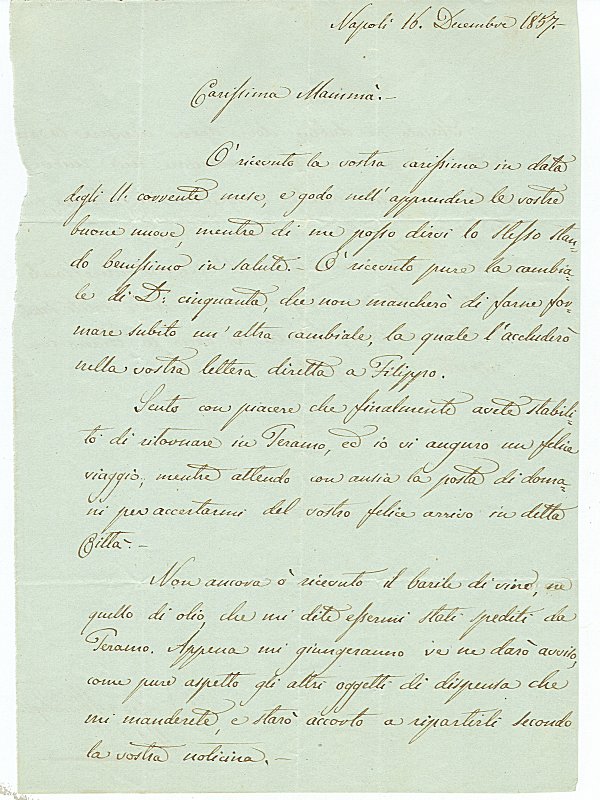 Napoli 16. Decembre 1857.-
Carissima Mammà.-
Ò ricevuto la vostra carissima in data
degli 11. corrente mese, e godo nell'apprendere le vostre
buone nuove, mentre di me posso dirvi lo stesso stan-
do benissimo in salute.- Ò ricevuto pure la cambia-
le di D.i cinquanta, che non mancherò di farne for-
mare subito un'altra cambiale, la quale l'accluderò
nella vostra lettera diretta a Filippo.
Sento con piacere che finalmente avete stabili-
to di ritornare in Teramo, ed io vi auguro un felice
viaggio, mentre attendo con ansia la posta di doma-
ni per accertarmi del vostro felice arrivo in detta
Città.-
Non ancora ò ricevuto il barile di vino, ne
quello di olio, che mi dite essermi stati spediti da
Teramo. Appena mi giungeranno ve ne darò avviso,
come pure aspetto gli altri oggetti di dispensa che
mi manderete, e starò accorto a ripartirli secondo
la vostra noticina.-